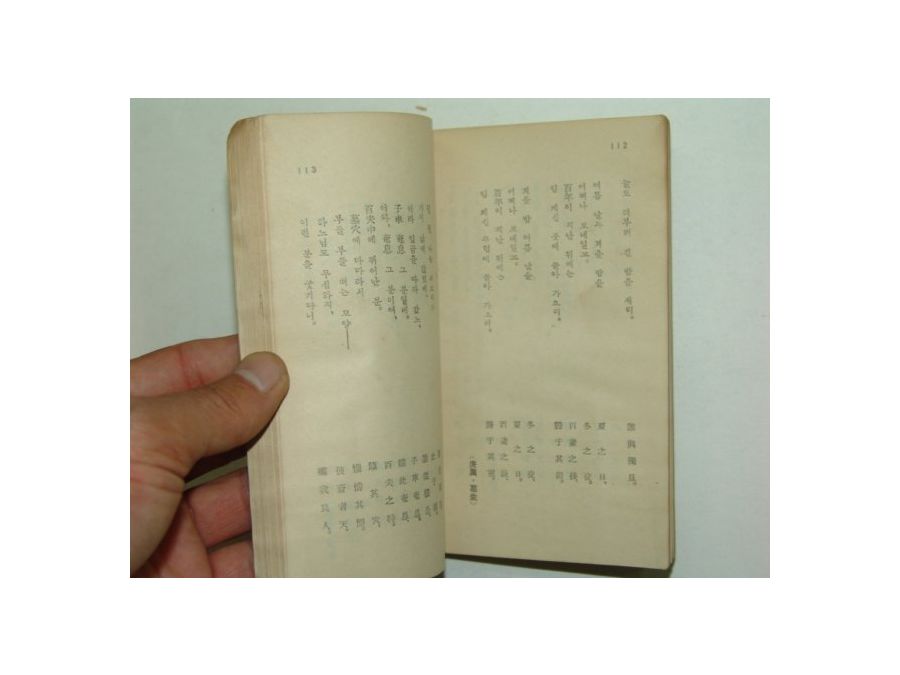 112
눌로 더부러 긴 밤을 새리.
여름 날과 겨울 밤을
어찌나 보내일꼬.
百年이 지난 뒤에는
임 계신 곳에 돌아 가오리.
겨울 밤 여름 날을
어찌나 보내일꼬.
百年이 지난 뒤에는
임 계신 무덤에 돌아 가오리.
誰與獨旦。
夏之日、
冬之夜、
百歲之後、
歸于其居。
冬之夜、
夏之日、
百歲之後、
歸于其室。
(唐風·葛生)
113
子車 奄息 그 분일네.
어와, 奄息 그 분이여,
百夫中에 뛰어난 분.
墓穴에 다다라서
부들 부들 떠는 모양——
하느님도 무심하지,
이런 분을 죽기다니.
子車奄息。
維此奄息、
百夫之特。
臨其穴、
惴惴其慄。
彼蒼者天、
殲我良人。